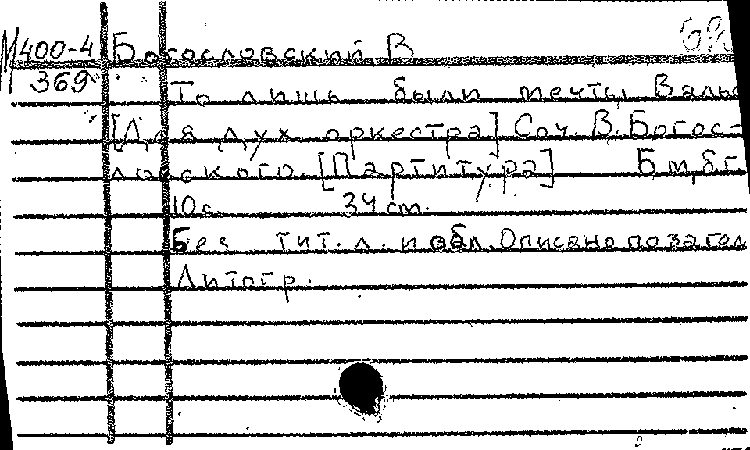 М400-4 Богословский, В.
369
То лишь были мечты. Вальс
[Для дух. оркестра] Соч. В. Богос-
ловского. [Партитура] Б.м., б.г.
10 с. 34 cm.
Без тит. л. и обл. Описано по загол.
Литогр.